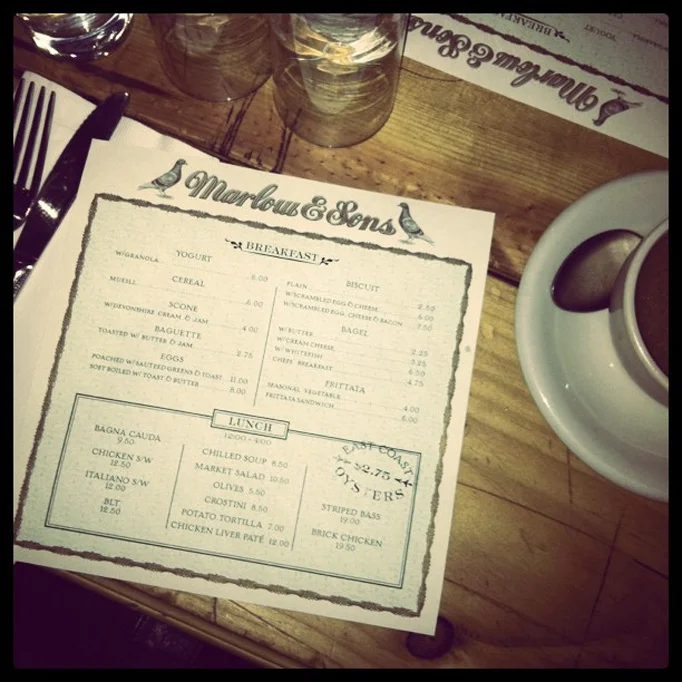 Marlow & Sons
BREAKFAST
YOGURT
W/GRANOLA 6.00
CEREAL
MUESLI 6.00
SCONE
W/DEVONSHIRE CREAM & JAM 4.00
BAGUETTE
TOASTED W/ BUTTER & JAM 2.75
EGGS
POACHED W/ SAUTEED GREENS & TOAST 11.00
SOFT BOILED W/ TOAST & BUTTER 8.00
BISCUIT
PLAIN 2.50
W/SCRAMBLED EGG & CHEESE 6.00
W/SCRAMBLED EGG, CHEESE & BACON 7.50
BAGEL
W/ BUTTER 2.25
W/ CREAM CHEESE 3.25
W/ WHITEFISH 6.50
CHEFS' BREAKFAST 4.75
FRITTATA
SEASONAL VEGETABLE 4.00
FRITTATA SANDWICH 6.00
LUNCH
12:00 - 4:00
BAGNA CAUDA
9.50
CHICKEN S/W
12.50
ITALIANO S/W
12.00
BLT
12.50
CHILLED SOUP 8.50
MARKET SALAD 10.50
OLIVES 5.50
CROSTINI 8.50
POTATO TORTILLA 7.00
CHICKEN LIVER PATÉ 12.00
EAST COAST
$2.75
OYSTERS
STRIPED BASS
19.00
BRICK CHICKEN
19.50
Marlow & Sons
BREAKFAST
YOGURT